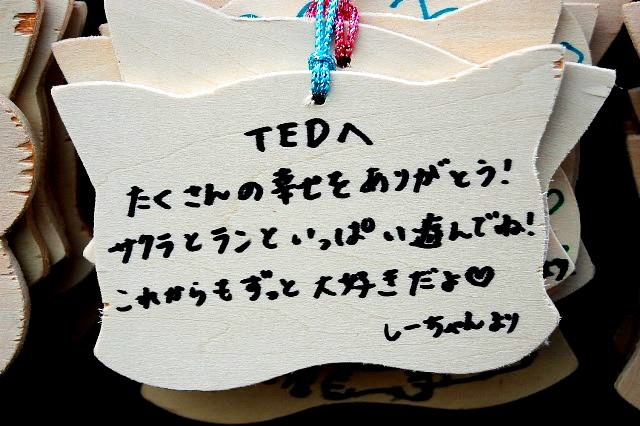 TEDへ
たくさんの幸せをありがとう!
サクラとランといっぱい遊んでね!
これからもずっと大好きだよ♡
しーちゃんより